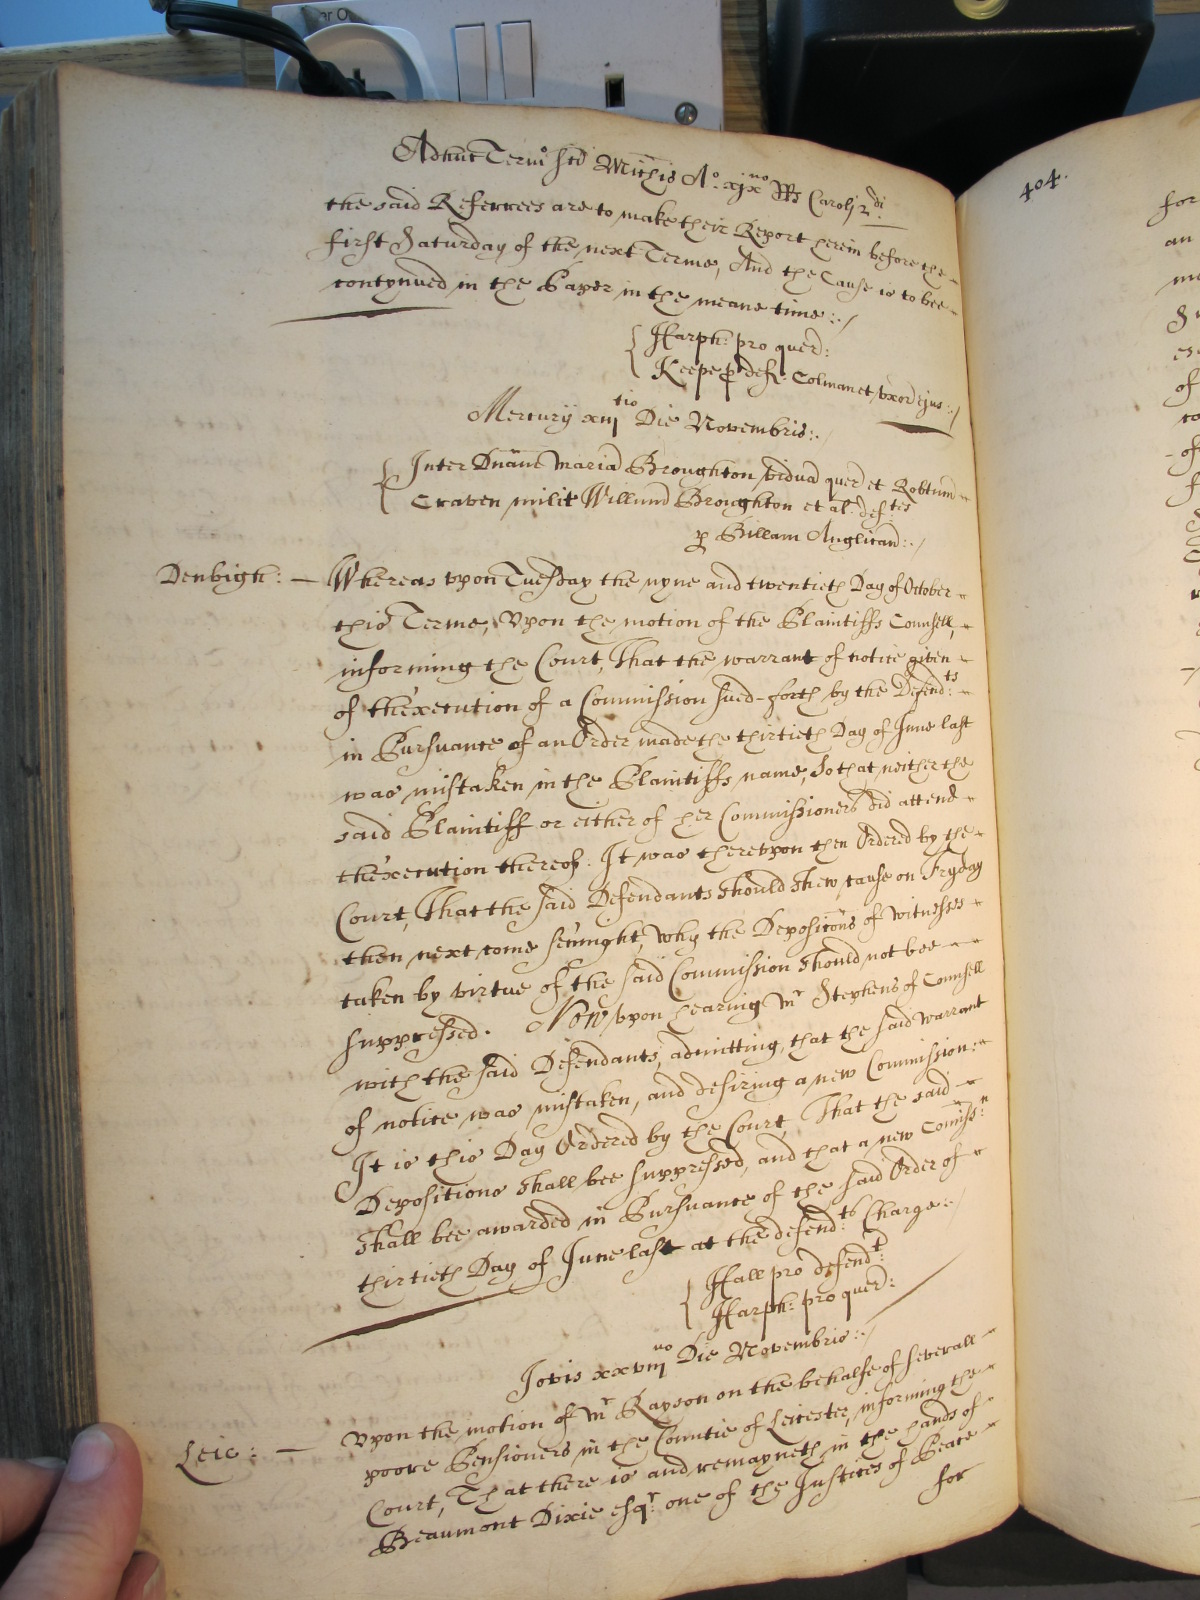 Adhuc Termi Scti Michis Ao. xixno RRs Carolj 2di.
the said Referrees are to make their Report herein before the
first Saturday of the next Terme, And the Cause is to bee
contynued in the Paper in the meane time:./
Harph: pro quer:
Keepe p defts Colman et vxor ejus:./
Mercurij xiijtio Die Novembris:.
Inter Dnam Mariã Broughton vidua quer et Robtum
Craven milit Willum Broughton et al: deftes
p Billam Anglican:./
Denbigh: — Whereas vpon Tuesday the nyne and twentieth Day of October
this Terme, Vpon the motion of the Plaintiffs Counsell,
informing the Court, That the warrant of notice given
of thexecution of a Commission sued-forth by the Defendts:
in Pursuance of an Order made the thirtieth Day of June last
was mistaken in the Plaintiffs name, So that neither the
said Plaintiff or either of her Commissioners did attend
thexecution thereof. It was therevpon then Ordered by the
Court, That the said Defendants should shew cause on Fryday
then next come sennight, why the Depositons of witnesses
taken by virtue of the said Commission should not bee
suppressed. Now vpon hearing Mr Stephens of Counsell
with the said Defendants, admitting, that the said warrant
of notice was mistaken, and desiring a new Commission:
It is this Day Ordered by the Court, That the said
Depositions shall bee suppressed, and that a new Comissn:
shall bee awarded in Pursuance of the said Order of
thirtieth Day of June last at the defendts: Charge:./
Hall pro defendt:
Harph: pro quer:
Jovis xxviijuo Die Novembris:./
Leic: — Vpon the motion of Mr Rapson on the behalfe of severall
poore Pensioners in the Countie of Leicester, informing the
Court, That there is and remayneth in the hands of
Beaumont Dixie esqr: one of the Justices of Peace
for
404.
for
an
of